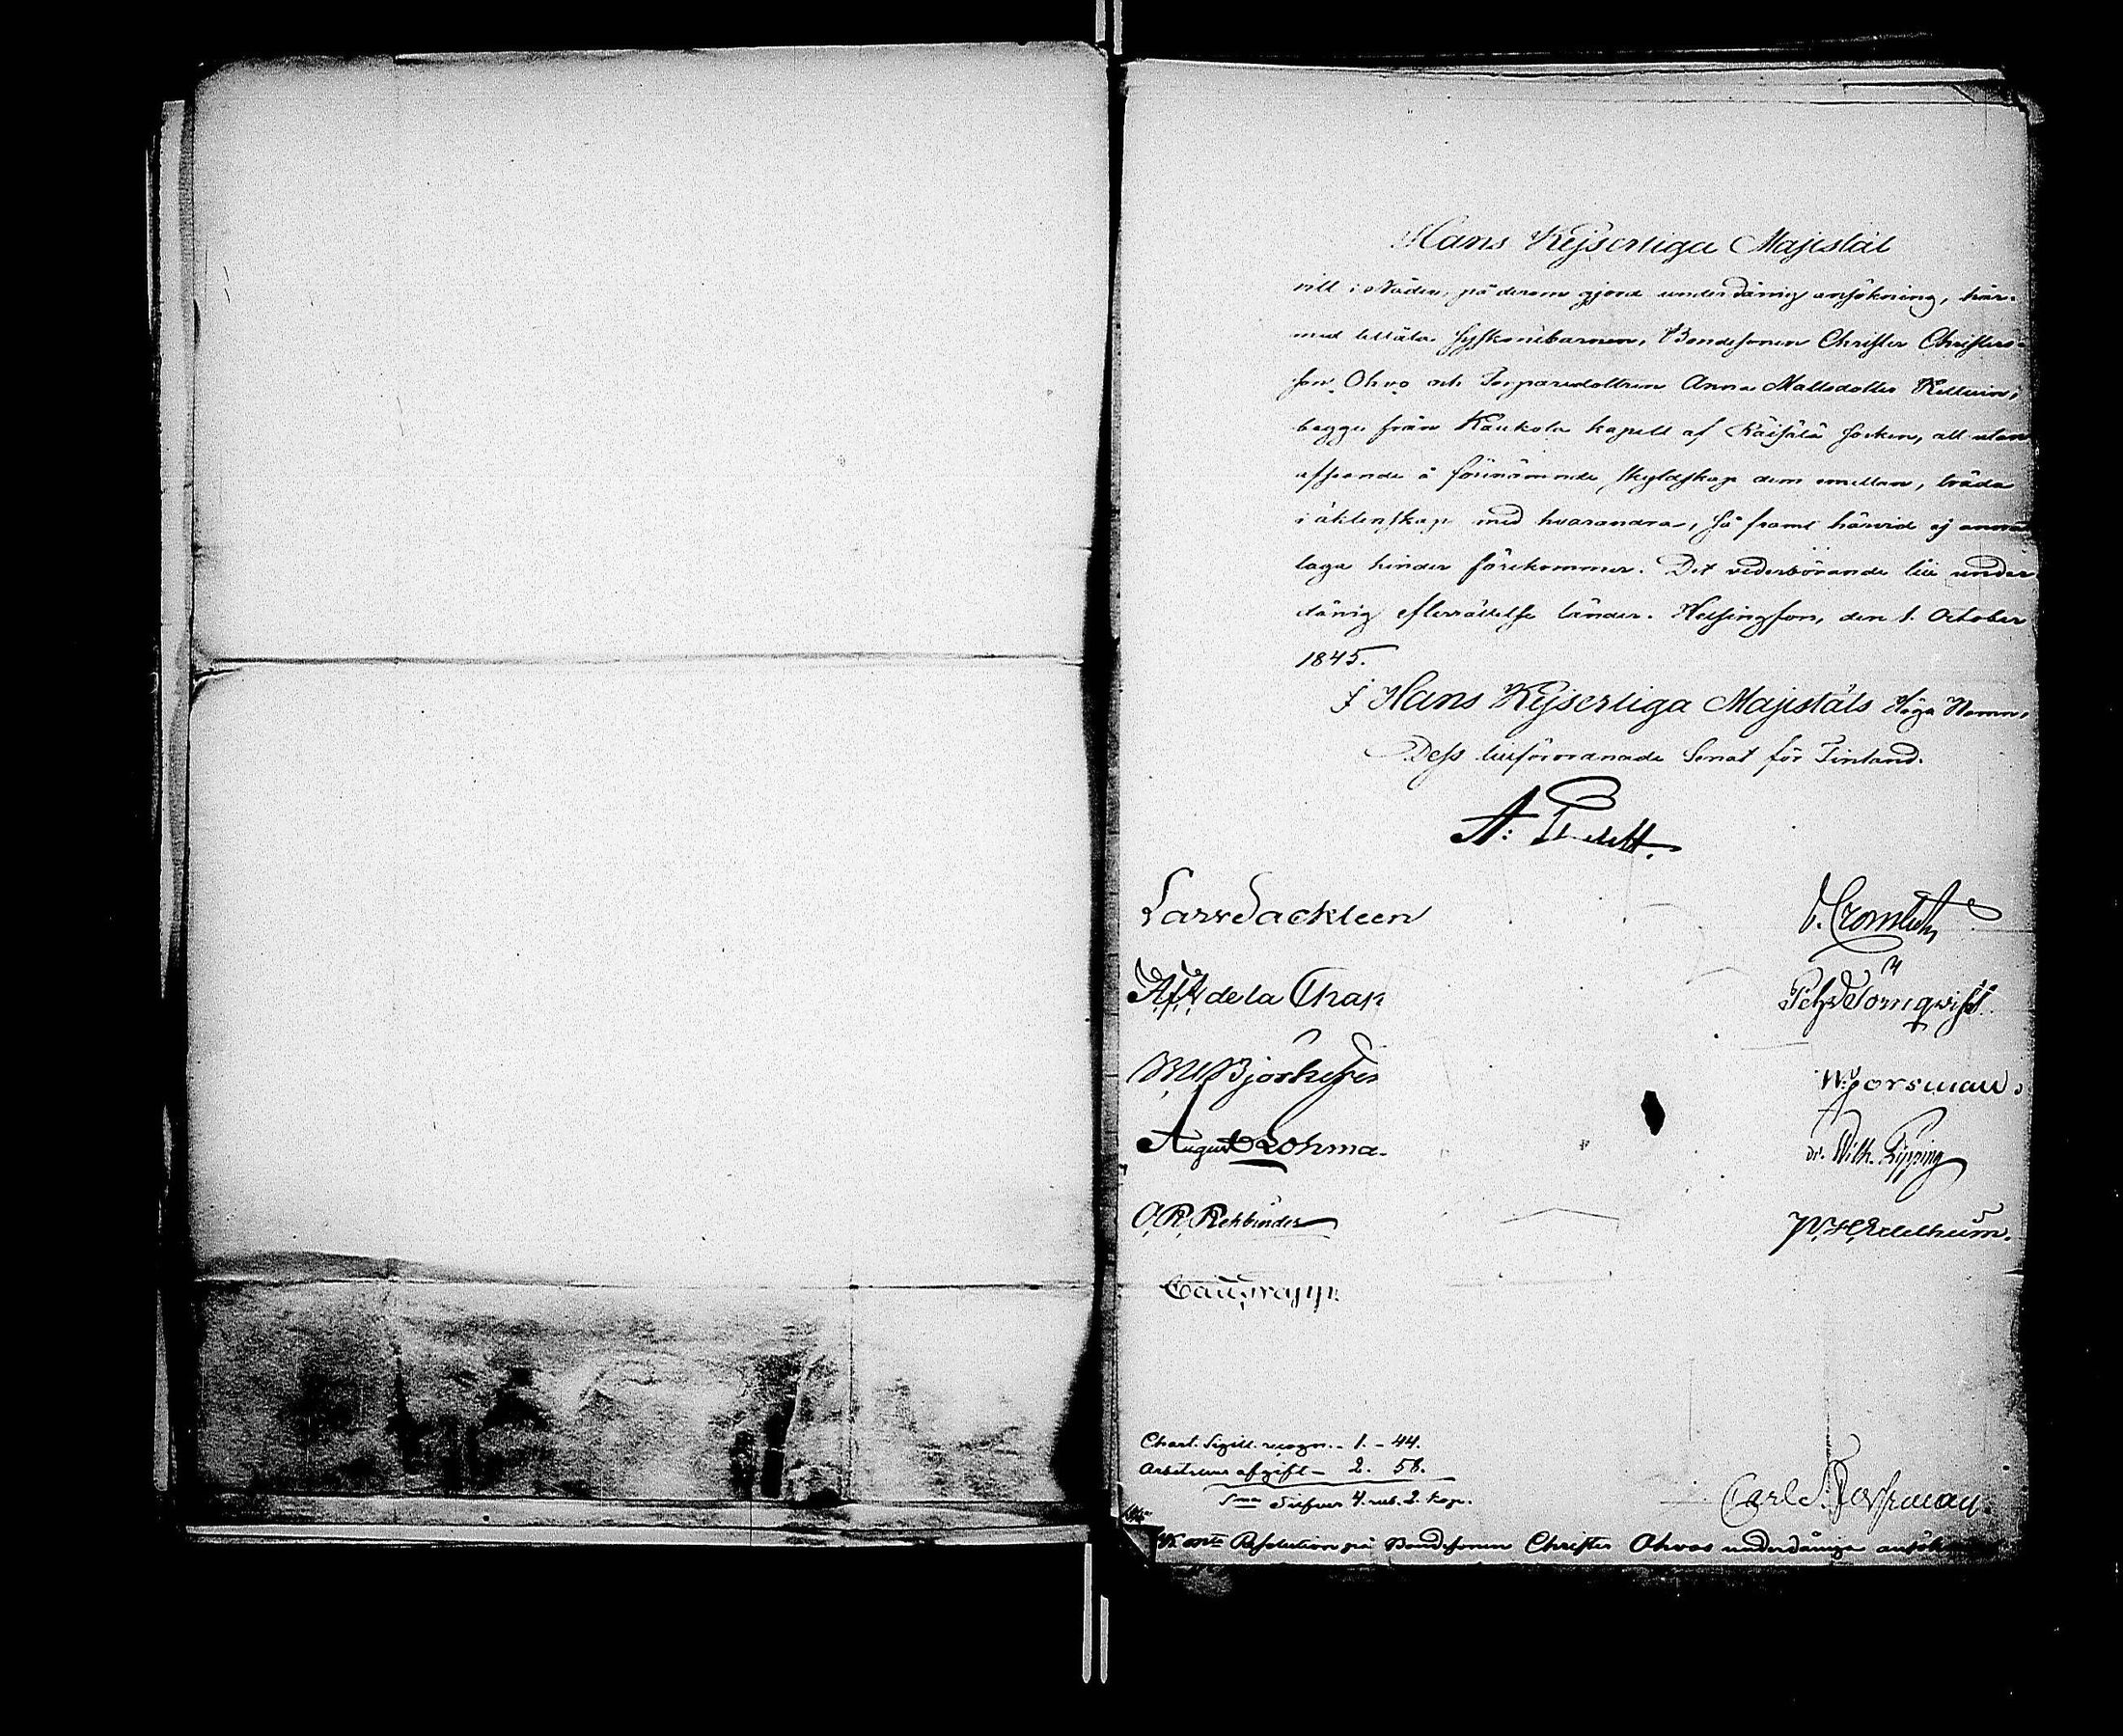 Hans Kejserliga Majestät
vill i Nåder, på derom gjord underdånig ansökning, här-
med tillåta Syskonebarnen, Bondesonen Christer Christers-
son Ohvo och Torparedottren Anna Mattsdotter
begge från Kaukola kapell af Räisälä Socken, att utan
afseende å förenämnde skyldskap dem emellan, träda
i äktenskap med hvarandra, så framt härvid ej annat
laga hinder förekommer. Det vederbörande till under-
dånig efterrättelse länder. Helsingfors, den 1. October
1845.
I Hans Kejserliga Majestäts Höga Namn,
Dess tillförordnade Senat för Finland.
A:
Lars Sackleen
de la Chap
Törnqvist
Björksten
W: Forsman
August Lohma
Wilh. Pipping
O. R. Rehbinder
Edelheim.
Chart. Sigill. recogn. - 1. - 44.
Arbetrum afgift - 2. 58.
Sma Silfver 4. rub. 2. kop.
Carl Forsman
Resolution på Bondesonen Christer Ohvos underdåniga ansök